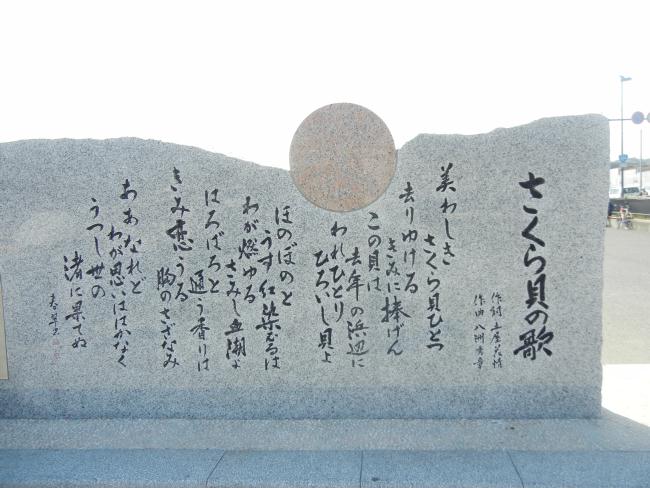 さくら貝の歌
作詞 土屋花情
作曲 八洲秀章
美わしき
さくら貝ひとつ
去りゆける
きみに捧げん
この貝は
去年の浜辺に
われひとり
ひろいし貝よ
ほのぼのと
うす紅染むるは
わが燃ゆる
さみし血潮よ
はろばろと
通う香りは
きみ恋うる
胸のさざなみ
ああなれど
わが思いははかなく
うつし世の
渚に果てぬ